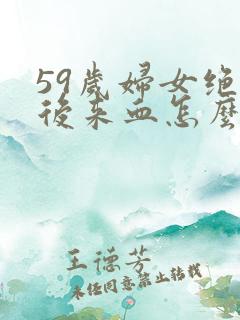 59歲婦女绝
後来血怎麼
王德芳
未经同意禁止转载